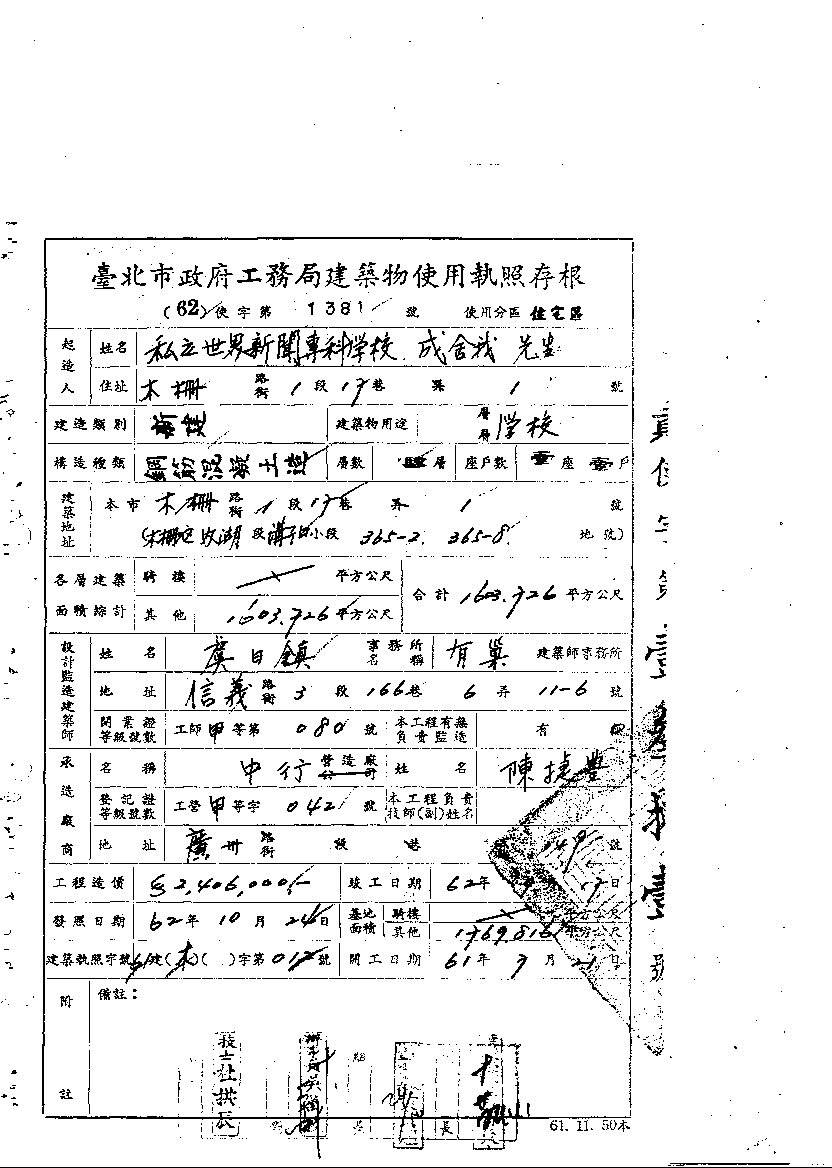 臺北市政府工務局建築物使用執照存根
(62)使字第 1381 號 使用分區 住宅區
起造人 姓名 私立世界新聞專科学校 成舍我 先生
住址 木柵 路街 1 段 17 巷 弄 1 號
建造類別 新建 建築物用途 層層 学校
構造種類 鋼筋混凝土造 層數 層 座戶數 壹座 壹戶
建築地址 本市 木柵 路街 1 段 17 巷 弄 1 號
(木柵區 段 小段 365-2. 365-8. 地號)
各層建築面積綜計 騎樓 平方公尺 合計 1603.726 平方公尺
其他 1603.726 平方公尺
設計監造建築師 姓名 虞日鎮 事務所名稱 有巢 建築師事務所
地址 信義 路街 3 段 166 巷 6 弄 11-6 號
開業證等級號數 工師甲等第 080 號 本工程有無負責監造 有
承造廠商 名稱 中行 營造廠公司 姓名 陳捷豐
登記證等級號數 工營甲等字 042 號 本工程負責技師(副)姓名
地址 廣州 路街 段 巷 149 號
工程造價 $2,406,000.- 竣工日期 62年 月 17日
發照日期 62年 10月 24日 基地面積 騎樓 平方公尺
其他 1769.816 平方公尺
建築執照字號 61建(木)( )字第 017 號 開工日期 61年 7月 21日
附註 備註：
技士杜拱辰
長
61. 11. 50本
壹
號